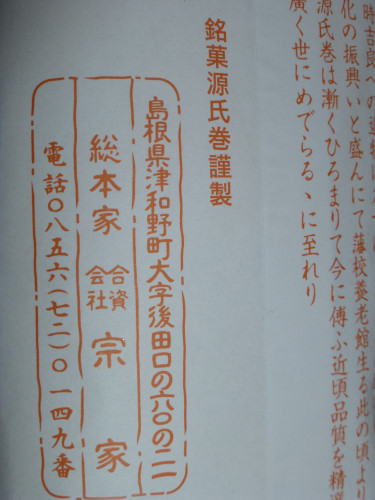 時吉良への進物
化の振興いと盛んにて藩校養老館生る此の頃より
源氏巻は漸くひろまりて今に傳ふ近頃品質を精
廣く世にめでらるゝに至れり
銘菓源氏巻謹製
島根県津和野町大字後田口の六〇の二一
総本家 合資会社 宗家
電話〇八五六(七二)〇一四九番